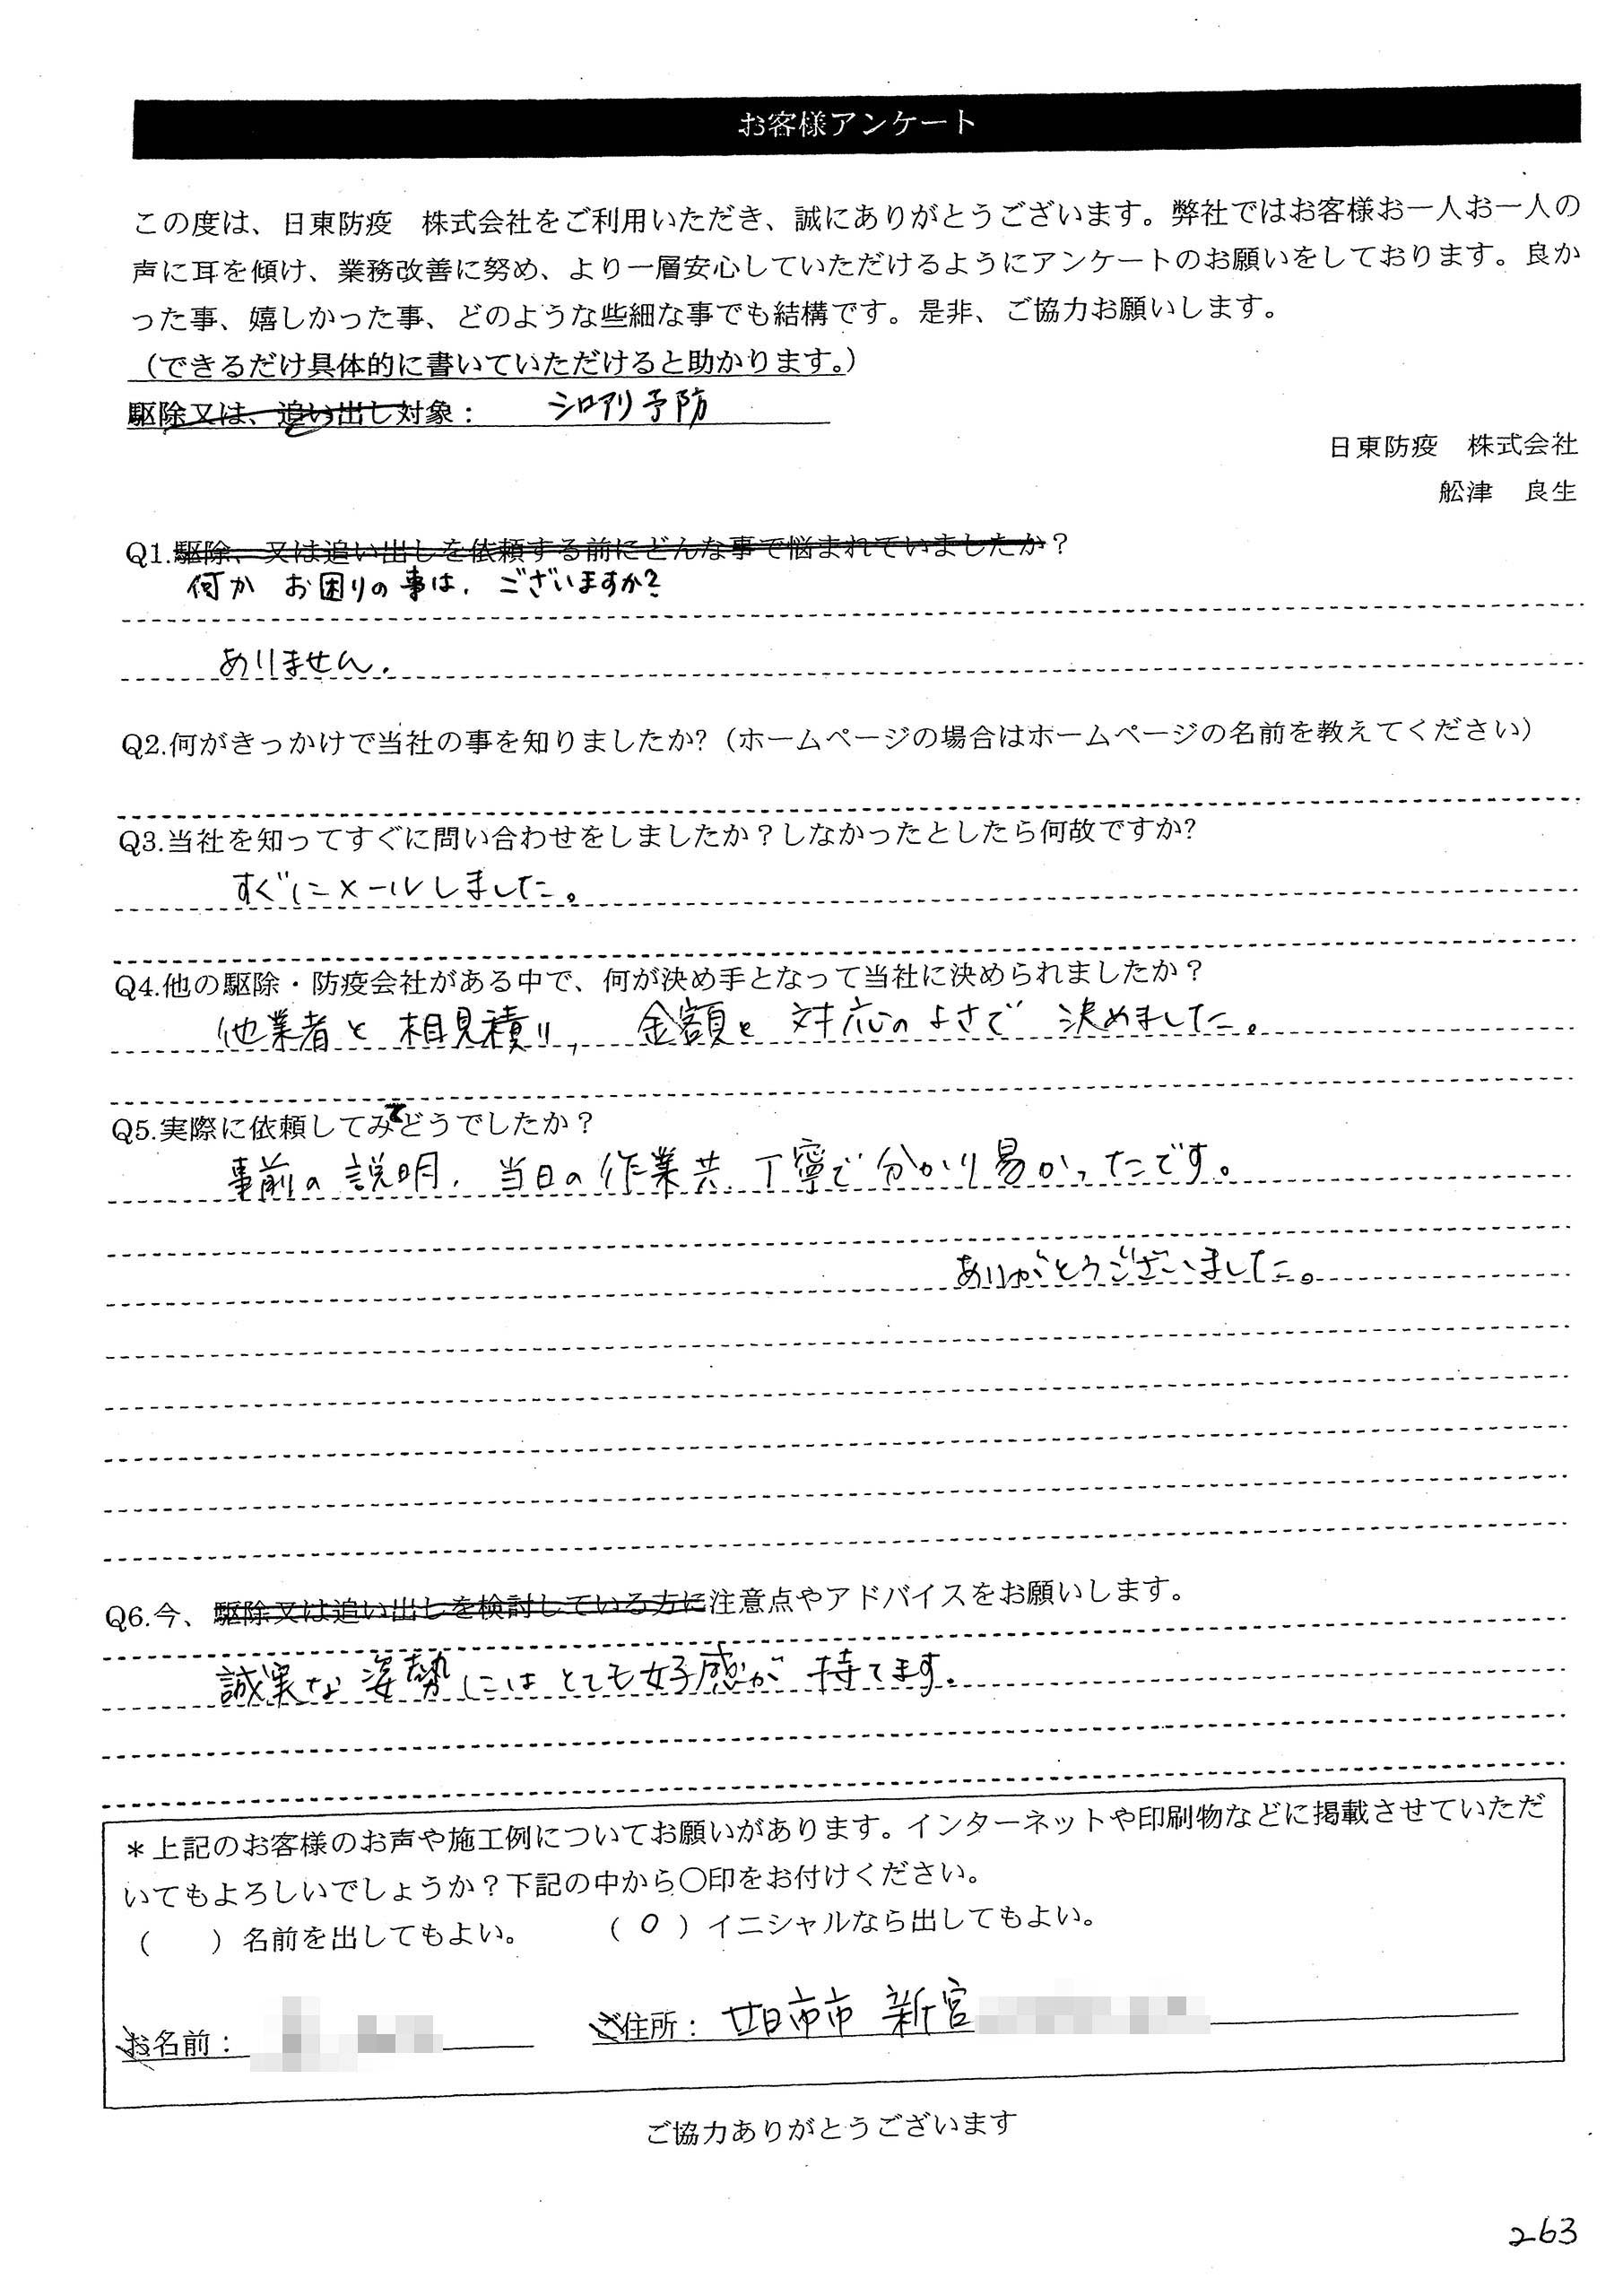 お客様アンケート
この度は、日東防疫　株式会社をご利用いただき、誠にありがとうございます。弊社ではお客様お一人お一人の
声に耳を傾け、業務改善に努め、より一層安心していただけるようにアンケートのお願いをしております。良か
った事、嬉しかった事、どのような些細な事でも結構です。是非、ご協力お願いします。
（できるだけ具体的に書いていただけると助かります。）
駆除又は、追い出し対象：　シロアリ予防
日東防疫　株式会社
舩津　良生
Q1.駆除、又は追い出しを依頼する前にどんな事で悩まれていましたか？
何か お困りの事は、ございますか？
ありません。
Q2.何がきっかけで当社の事を知りましたか?（ホームページの場合はホームページの名前を教えてください）
Q3.当社を知ってすぐに問い合わせをしましたか？しなかったとしたら何故ですか?
すぐにメールしました。
Q4.他の駆除・防疫会社がある中で、何が決め手となって当社に決められましたか？
他業者と相見積り、金額と対応のよさで決めました。
Q5.実際に依頼してみてどうでしたか？
事前の説明、当日の作業共、丁寧で分かり易かったです。
ありがとうございました。
Q6.今、駆除又は追い出しを検討している方に注意点やアドバイスをお願いします。
誠実な姿勢にはとても好感が持てます。
＊上記のお客様のお声や施工例についてお願いがあります。インターネットや印刷物などに掲載させていただ
いてもよろしいでしょうか？下記の中から〇印をお付けください。
（　　）名前を出してもよい。　（ O ）イニシャルなら出してもよい。
お名前：　ご住所：廿日市市 新宮
ご協力ありがとうございます
263